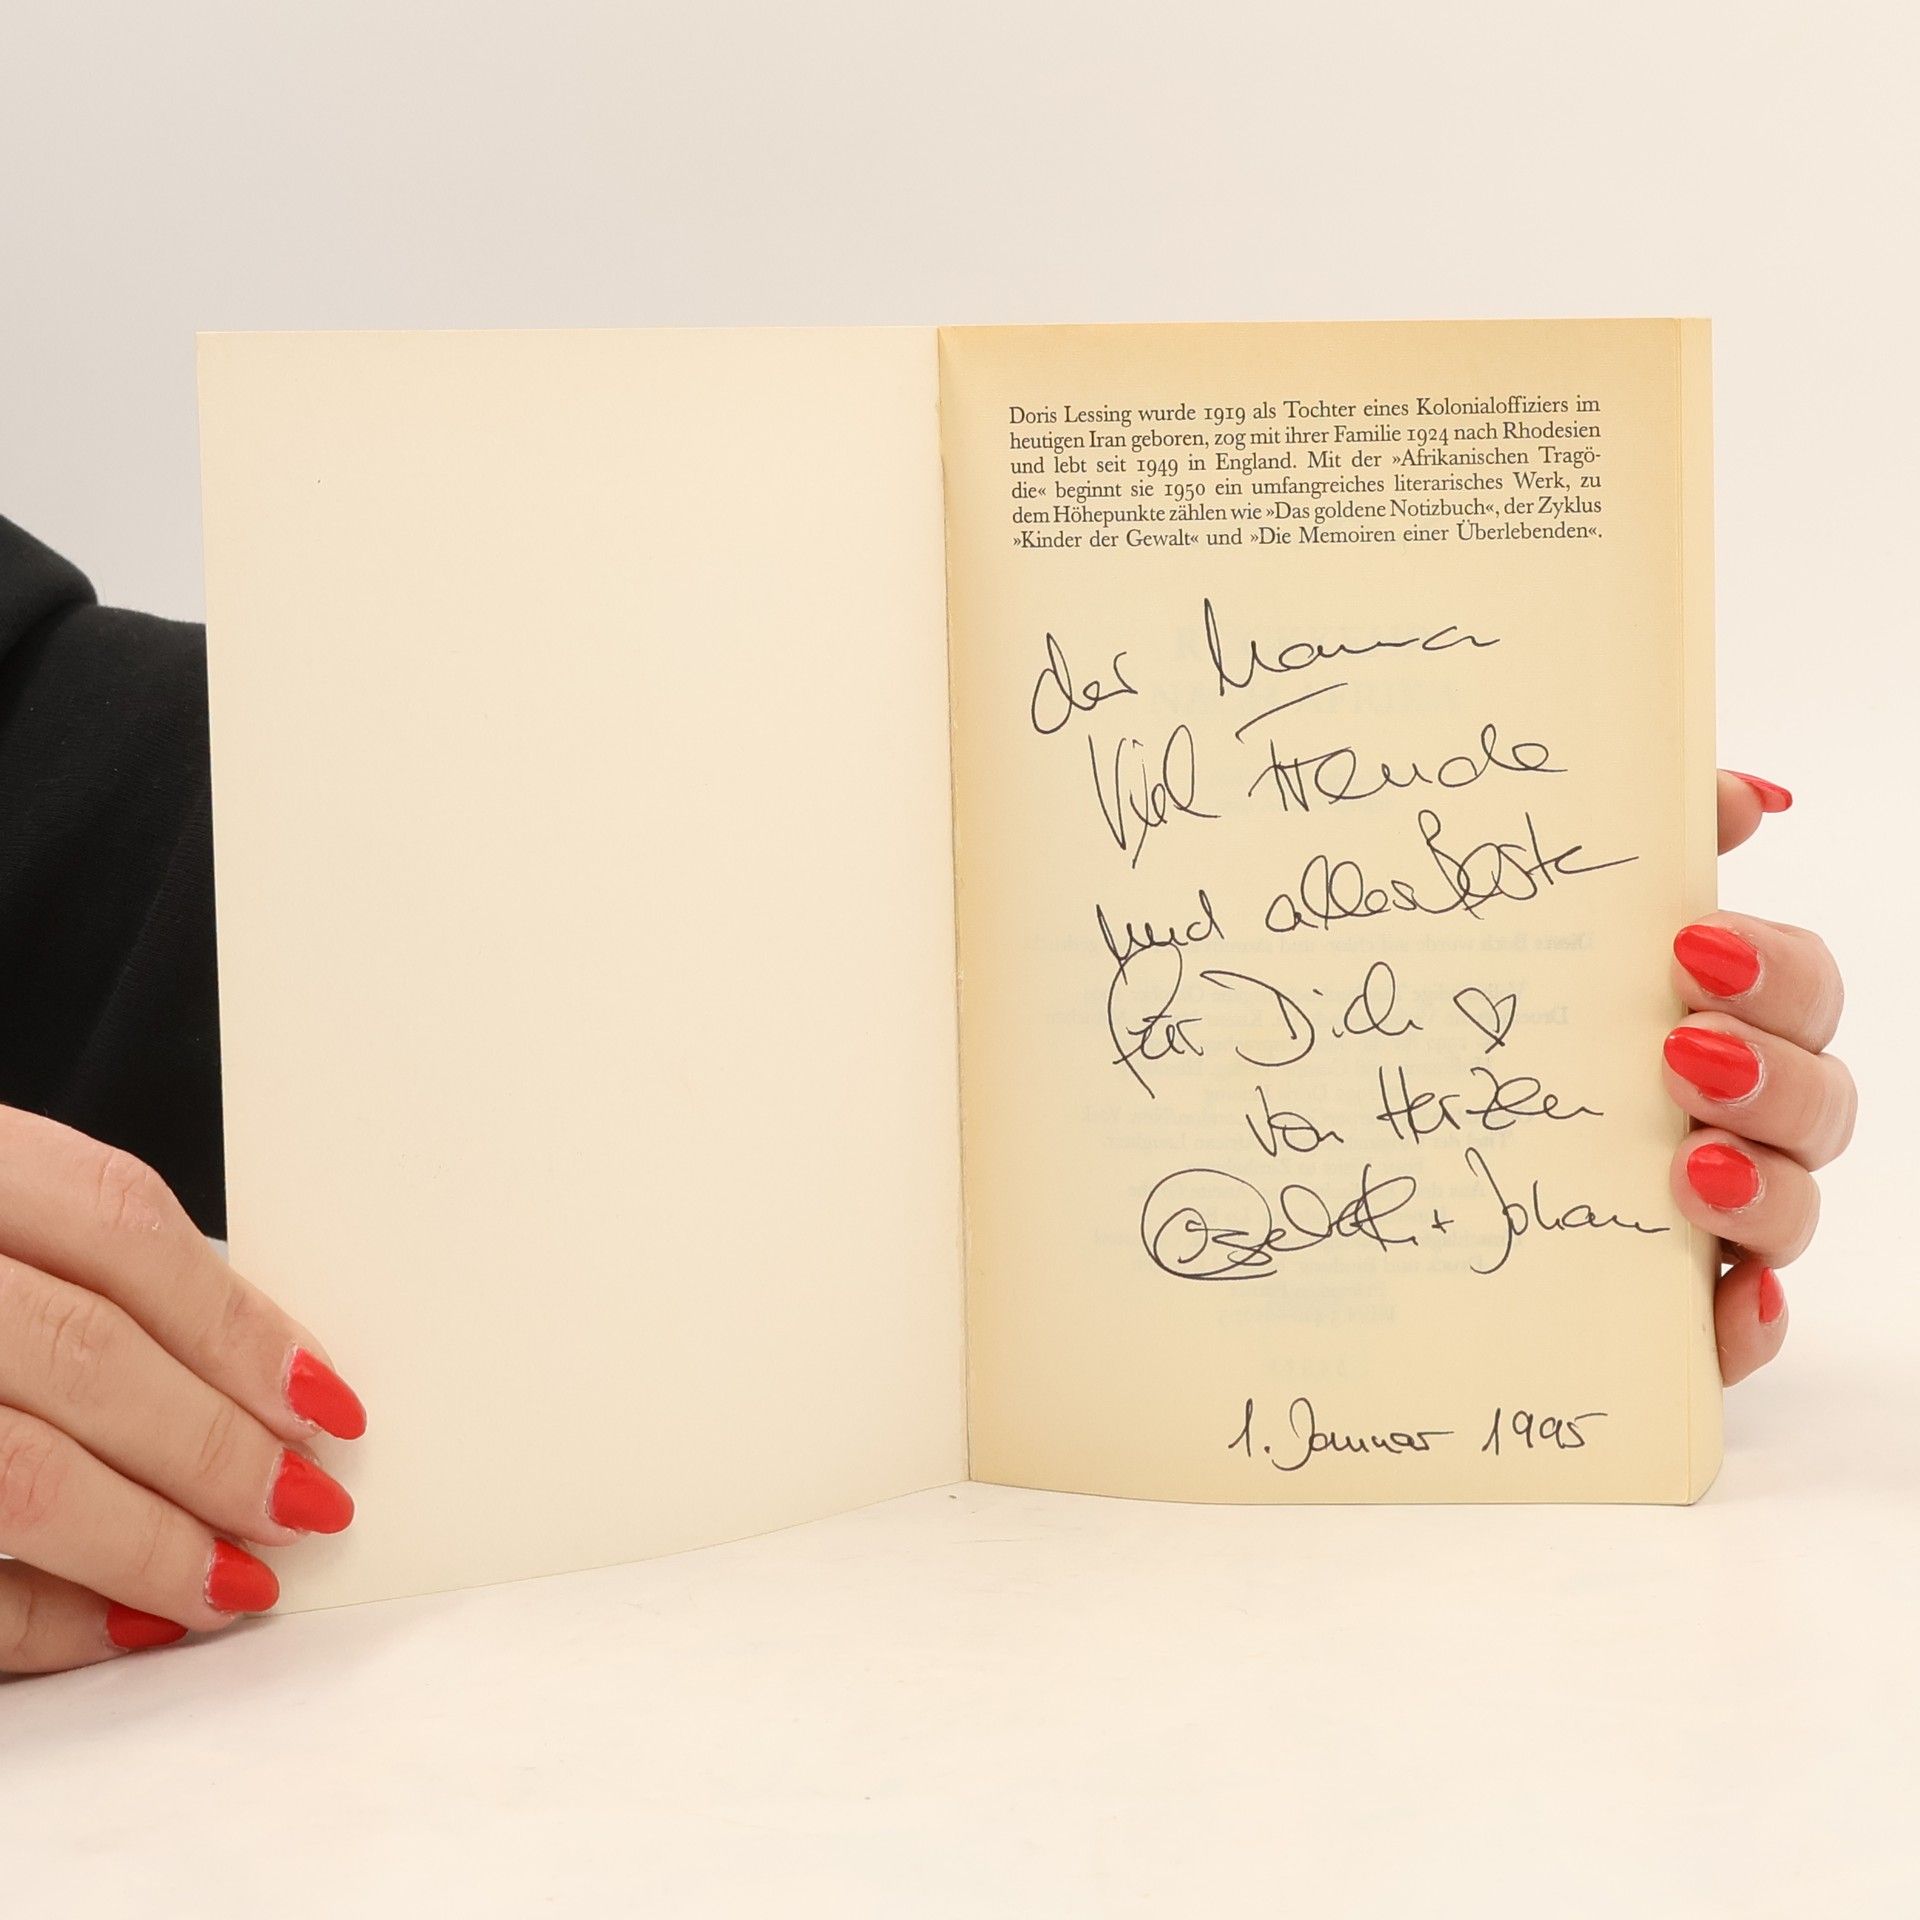 Doris Lessing wurde 1919 als Tochter eines Kolonialoffiziers im
heutigen Iran geboren, zog mit ihrer Familie 1924 nach Rhodesien
und lebt seit 1949 in England. Mit der »Afrikanischen Tragö-
die« beginnt sie 1950 ein umfangreiches literarisches Werk, zu
dem Höhepunkte zählen wie »Das goldene Notizbuch«, der Zyklus
»Kinder der Gewalt« und »Die Memoiren einer Überlebenden«.
der Mama
Viel Freude
und alles Beste
für Dich ♡
von Herzen
+ Johann
1. Januar 1995